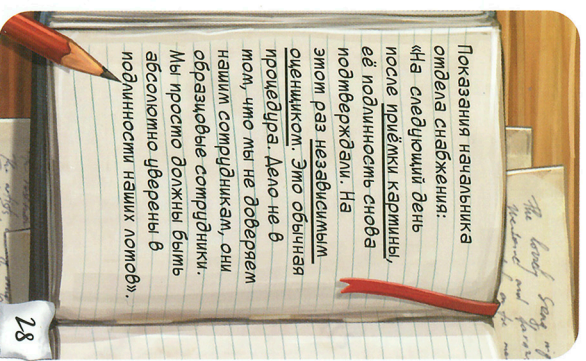 Показания начальника
отдела снабжения:
«На следующий день
после приёмки картины,
её подлинность снова
подтверждали. На
этот раз независимым
оценщиком. Это обычная
процедура. Дело не в
том, что мы не доверяем
нашим сотрудникам, они
образцовые сотрудники.
Мы просто должны быть
абсолютно уверены в
подлинности наших лотов».
28
The lovely